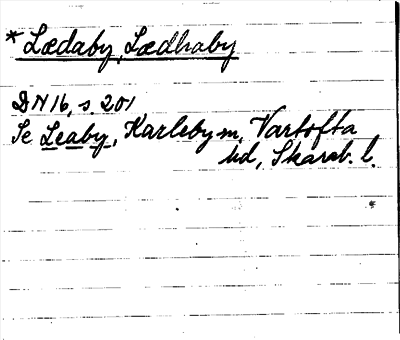 * Lædaby, Lædhaby
DN 16, s. 201
Se Leaby, Karleby sn, Vartofta
hd, Skarab. l.